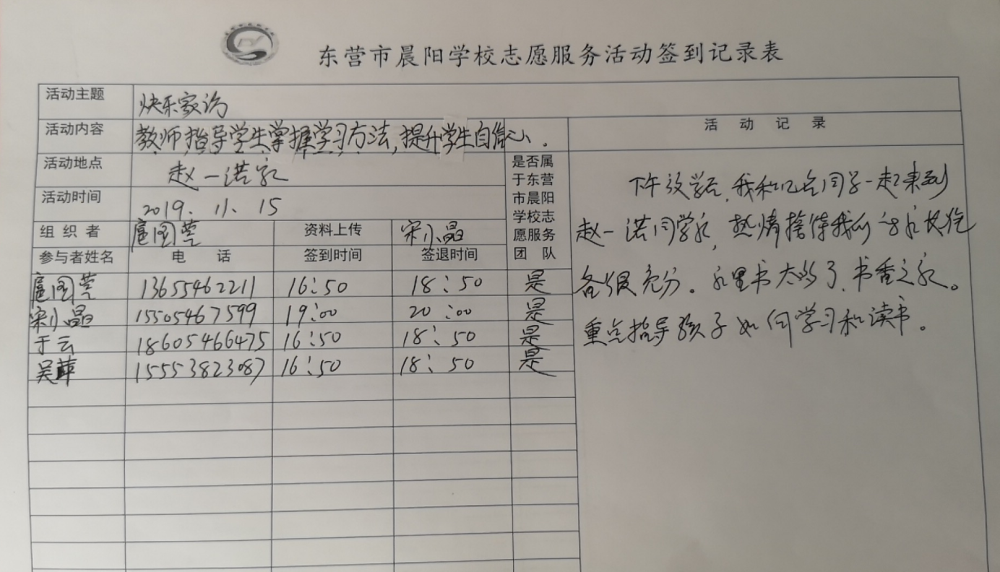 东营市晨阳学校志愿服务活动签到记录表
活动主题 快乐家访
活动内容 教师指导学生掌握学习方法,提升学生自信心.
活动地点 赵一洪家
活动时间 2019.11.15
组织者 扈图 资料上传 宋小晶
参与者姓名 电话 签到时间 签退时间 是否属于东营市晨阳学校志愿服务团队
扈图 13655462211 16:50 18:50 是
宋小晶 15505467599 19:00 20:00 是
于云 18605466475 16:50 18:50 是
吴萍 15553823087 16:50 18:50 是
活动记录
下午放学后,我和几名同学一起来到
赵一洪同学家,热情接待我们
各很充分。家里书太多了,书香之家。
重点指导孩子如何学习和读书。